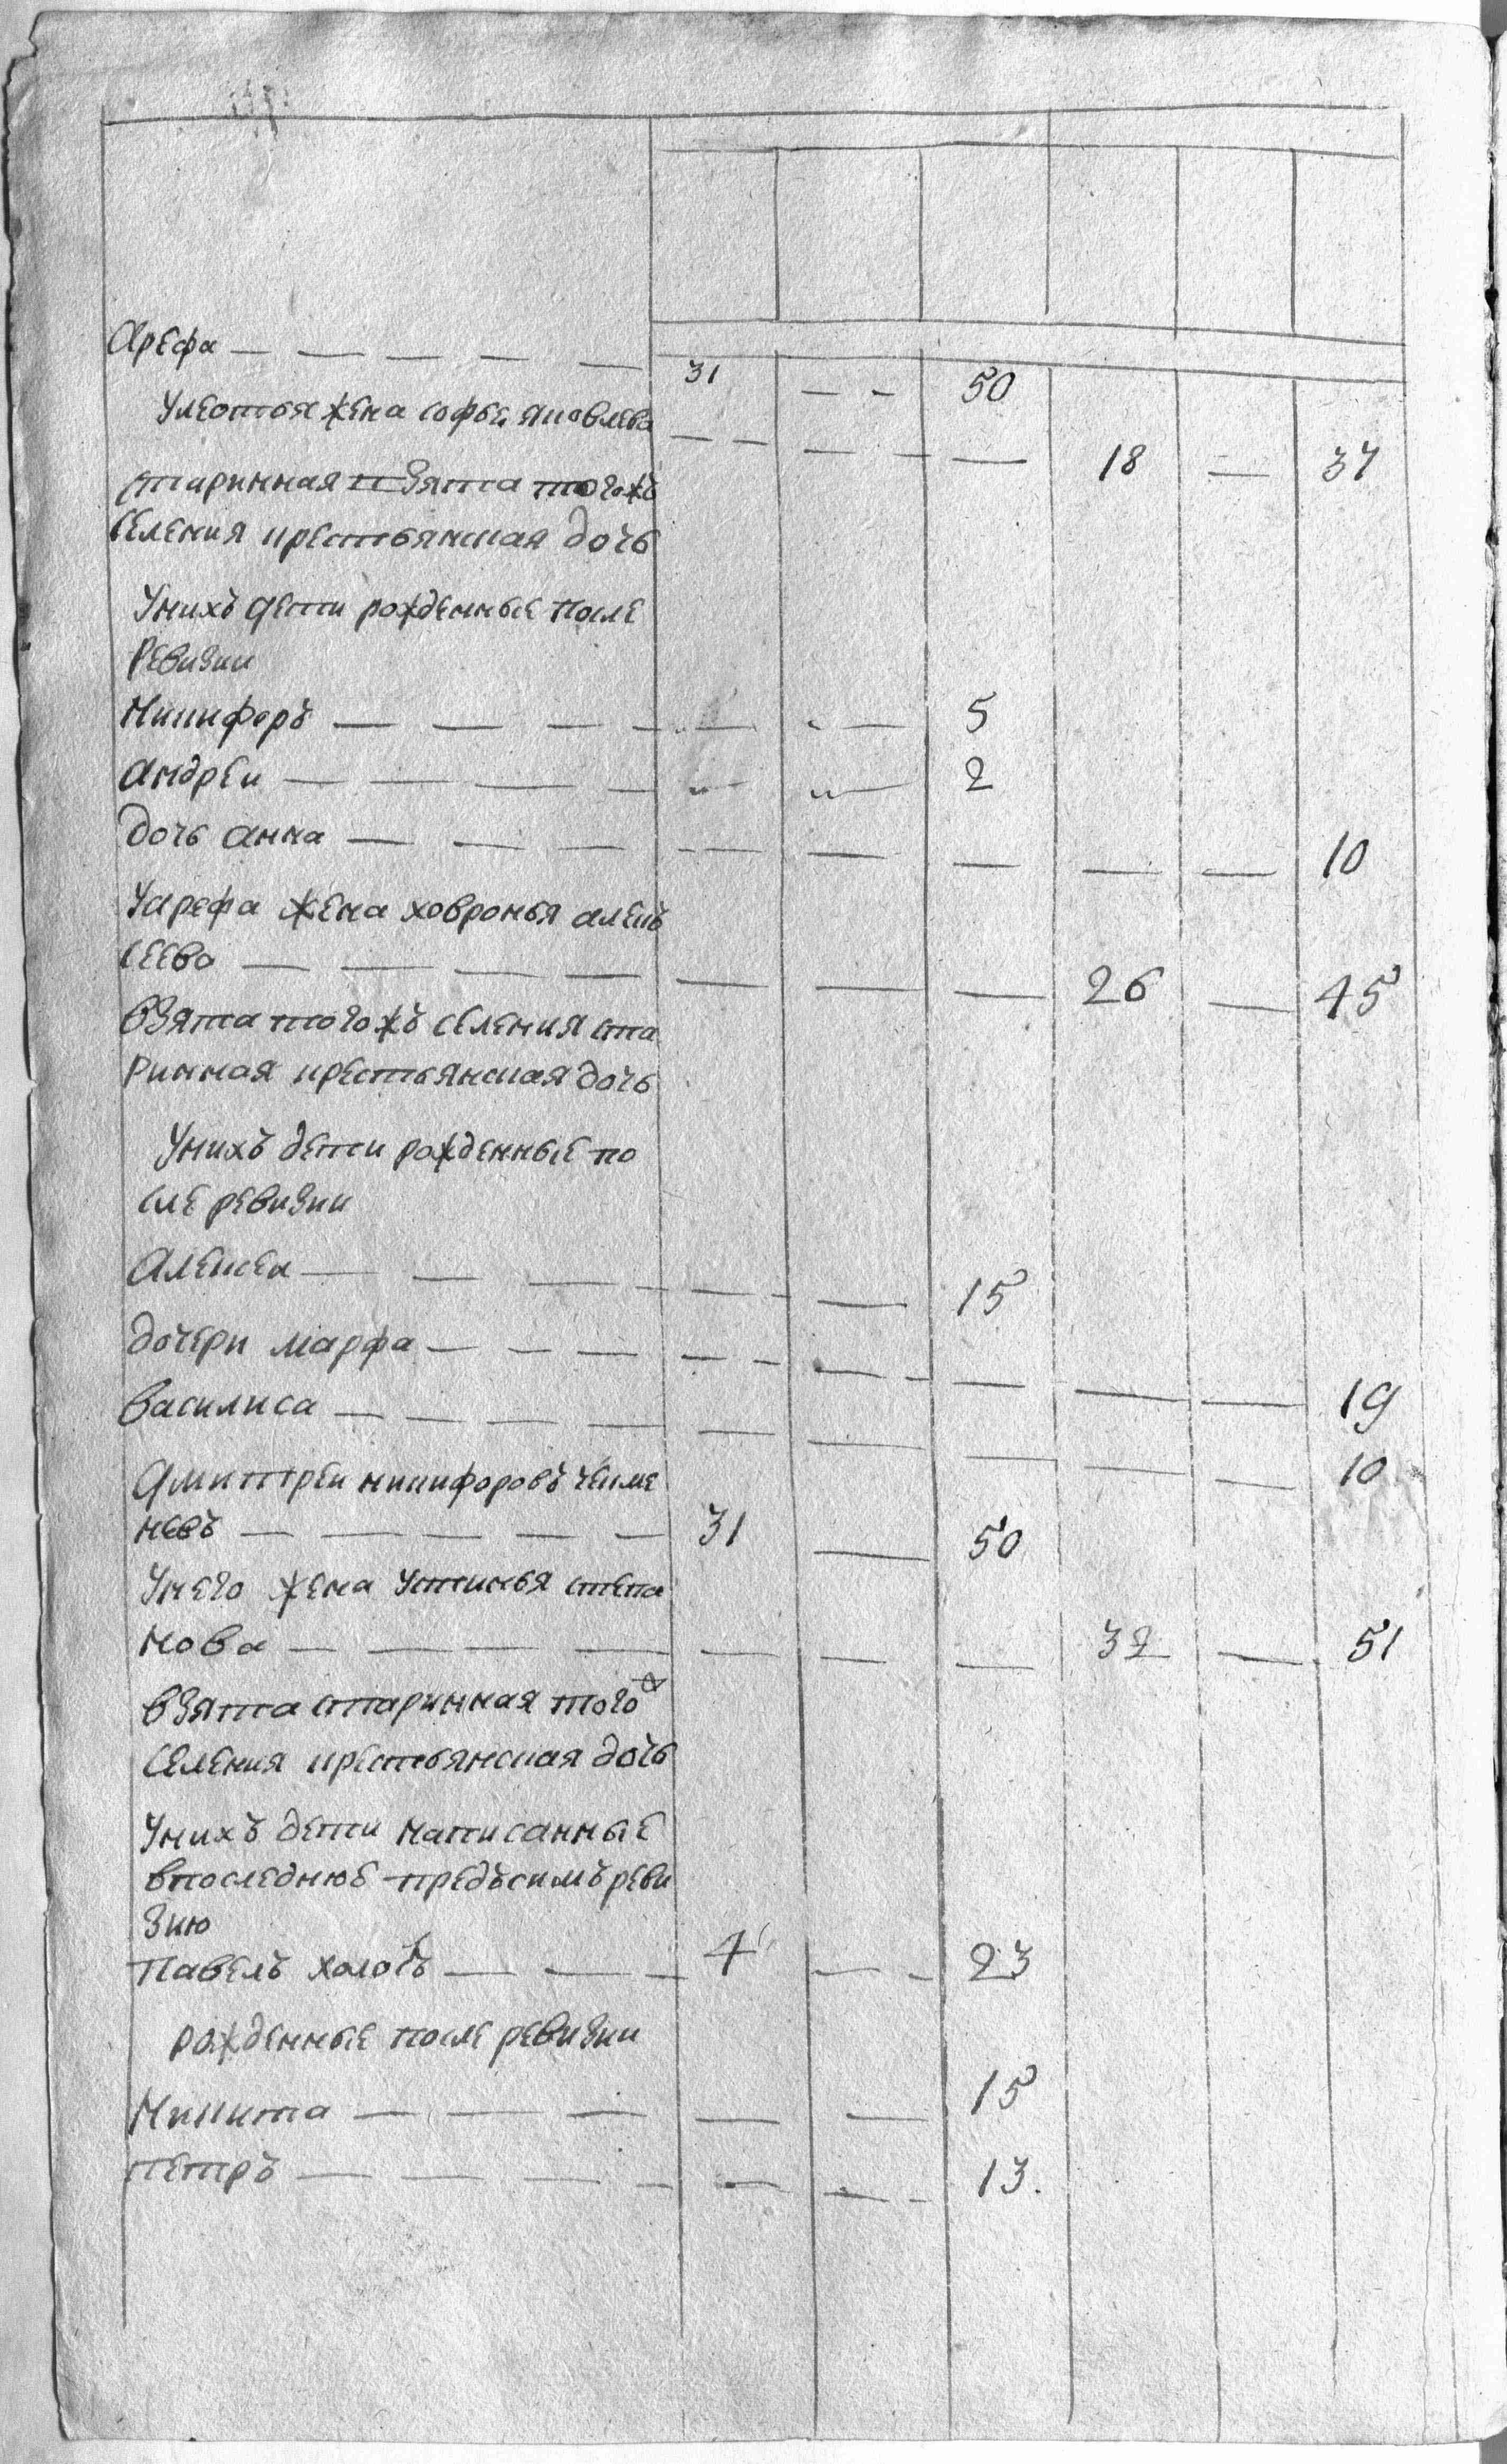 Арефа — — — — — 31 — - 50
Улеонтья жена софья яковлева — — — — — 18 — 37
старинная взята тогожъ
селения крестьянская дочь
Унихъ дети рожденные после
ревизии
Никифоръ — — — — — — 5
андреи — — — — — — 2
дочь анна — — — — — — — — — 10
Уарефа жена ховронья алекъ
сеева — — — — — — — 26 — 45
взята тогожъ селения ста
ринная крестьянская дочь
Унихъ дети рожденные по
сле ревизии
Алексеи — — — — — — 15
дочери марфа — — — — — — — — — 19
василиса — — — — — — — — — 10
Дмитреи никифоровъ
невъ — — — — — 31 — 50
Унего жена устинья степа
нова — — — — — — — 32 — 51
взята старинная того ж
селения крестьянская дочь
Унихъ дети написанные
впоследнюе предъсимъ реви
зию
Павелъ холостъ — — — 4 — - 23
рожденные после ревизии
Никита — — — — — 15
петръ — — — — — — - 13.